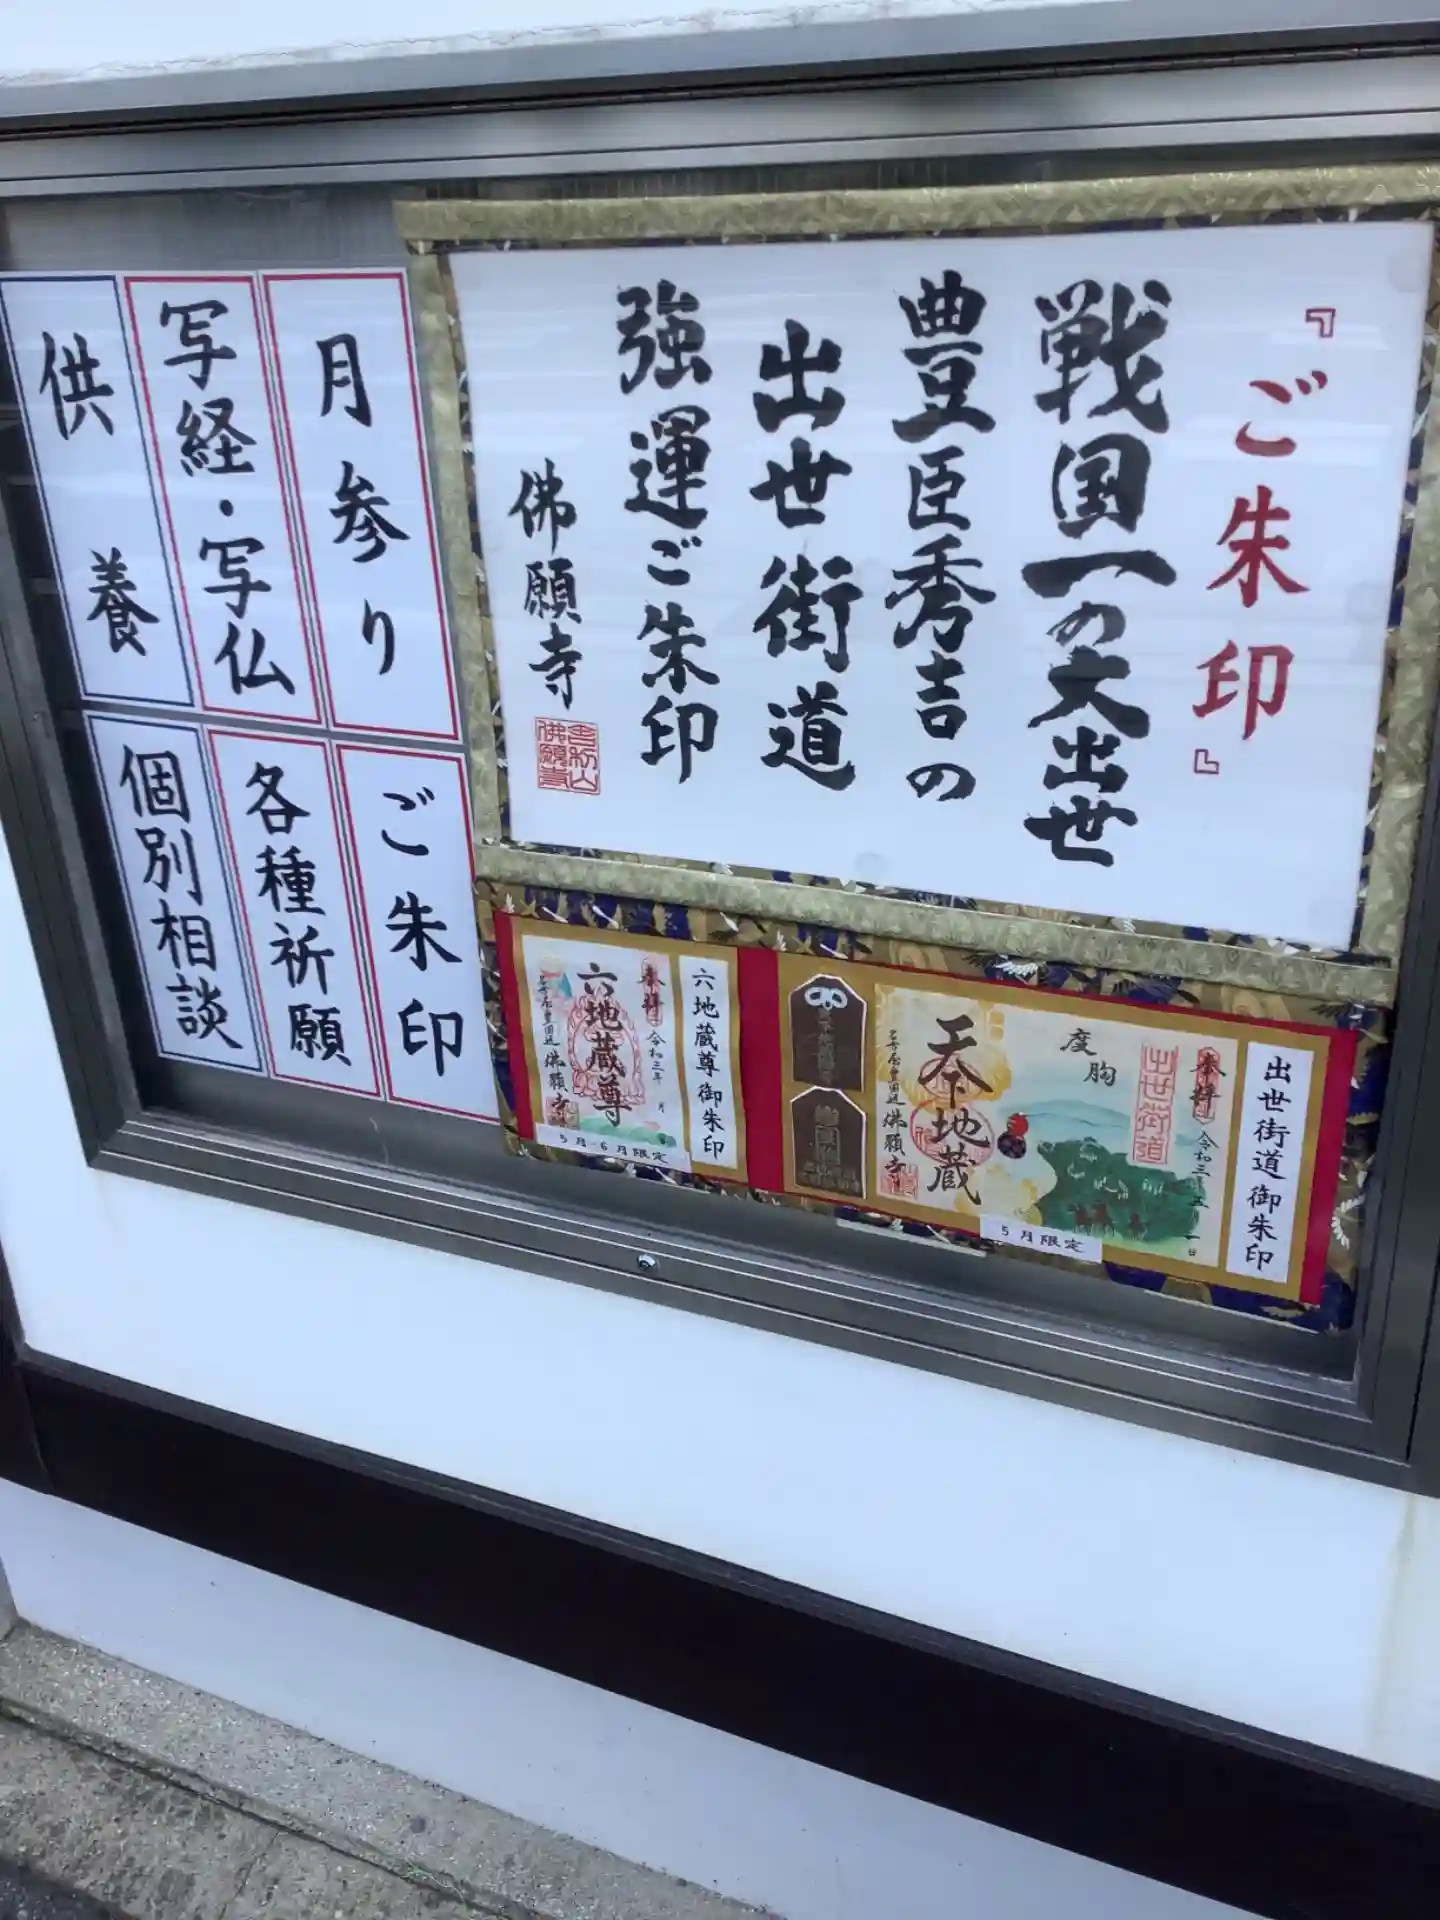 『ご朱印』
戦国一の大出世
豊臣秀吉の
出世街道
強運ご朱印
佛願寺
月参り
写経・写仏
供養
ご朱印
各種祈願
個別相談
出世街道御朱印
奉拝
出世街道
度胸
天下地蔵
佛願寺
5月限定
六地蔵尊御朱印
奉拝
令和三年 月
六地蔵尊
佛願寺
5月-6月限定